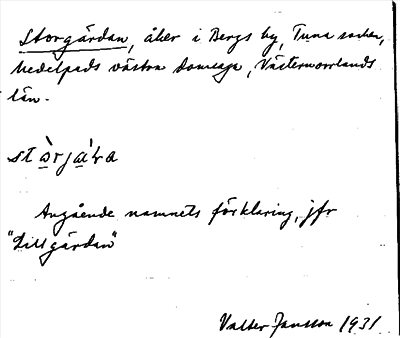 Storgårdan, åker i Bergs by, Tuna socken,
Medelpads västra domsaga, Västernorrlands
län.
stòrjáɾa
Angående namnets förklaring, jfr
"Lillgårdan"
Valter Jansson 1931